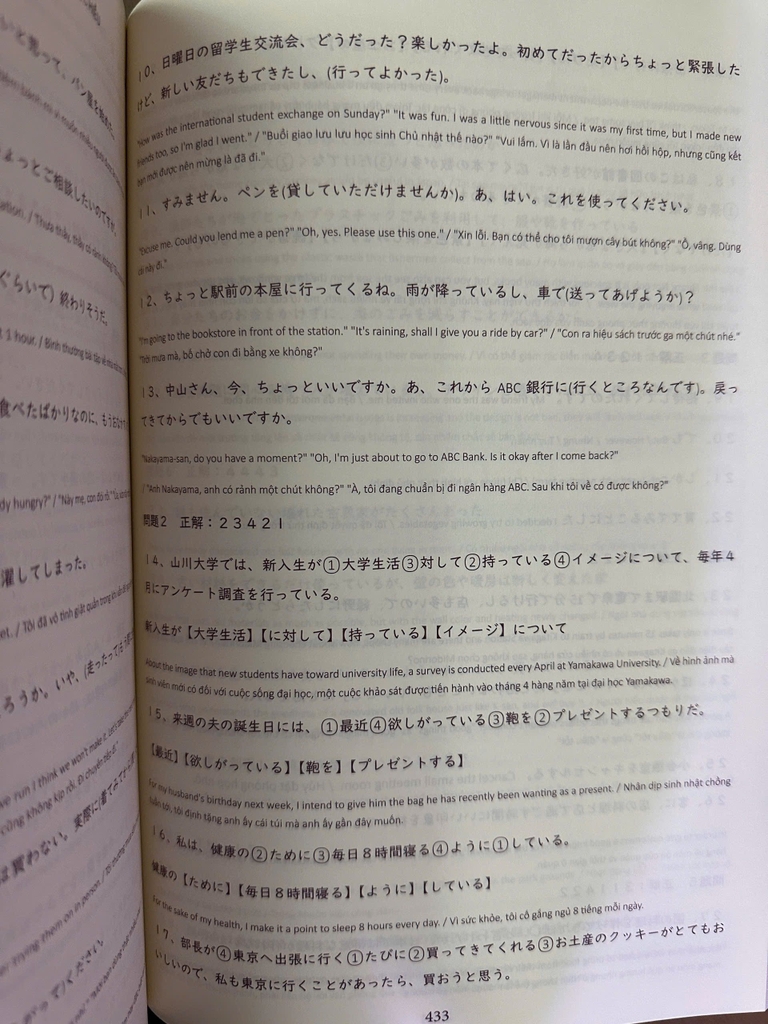 10、日曜日の留学生交流会、どうだった？楽しかったよ。初めてだったからちょっと緊張した
けど、新しい友だちもできたし、(行ってよかった)。
"How was the international student exchange on Sunday?" "It was fun. I was a little nervous since it was my first time, but I made new
friends too, so I'm glad I went." / "Buổi giao lưu lưu học sinh Chủ nhật thế nào?" "Vui lắm. Vì là lần đầu nên hơi hồi hộp, nhưng cũng kết
bạn mới được nên mừng là đã đi."
11、すみません。ペンを(貸していただけませんか)。あ、はい。これを使ってください。
"Excuse me. Could you lend me a pen?" "Oh, yes. Please use this one." / "Xin lỗi. Bạn có thể cho tôi mượn cây bút không?" "Ồ, vâng. Dùng
cái này đi."
12、ちょっと駅前の本屋に行ってくるね。雨が降っているし、車で(送ってあげようか)？
"I'm going to the bookstore in front of the station." "It's raining, shall I give you a ride by car?" / "Con ra hiệu sách trước ga một chút nhé."
"Trời mưa mà, bố chở con đi bằng xe không?"
13、中山さん、今、ちょっといいですか。あ、これから ABC 銀行に(行くところなんです)。戻っ
てきてからでもいいですか。
"Nakayama-san, do you have a moment?" "Oh, I'm just about to go to ABC Bank. Is it okay after I come back?"
/ "Anh Nakayama, anh có rảnh một chút không?" "À, tôi đang chuẩn bị đi ngân hàng ABC. Sau khi tôi về có được không?"
問題2　正解：２３４２１
14、山川大学では、新入生が①大学生活③対して②持っている④イメージについて、毎年４
月にアンケート調査を行っている。
新入生が【大学生活】【に対して】【持っている】【イメージ】について
About the image that new students have toward university life, a survey is conducted every April at Yamakawa University. / Về hình ảnh mà
sinh viên mới có đối với cuộc sống đại học, một cuộc khảo sát được tiến hành vào tháng 4 hàng năm tại đại học Yamakawa.
15、来週の夫の誕生日には、①最近④欲しがっている③鞄を②プレゼントするつもりだ。
【最近】【欲しがっている】【鞄を】【プレゼントする】
For my husband's birthday next week, I intend to give him the bag he has recently been wanting as a present. / Nhân dịp sinh nhật chồng
tuần tới, tôi định tặng anh ấy cái túi mà anh ấy gần đây muốn.
16、私は、健康の②ために③毎日８時間寝る④ように①している。
健康の【ために】【毎日８時間寝る】【ように】【している】
For the sake of my health, I make it a point to sleep 8 hours every day. / Vì sức khỏe, tôi cố gắng ngủ 8 tiếng mỗi ngày.
17、部長が④東京へ出張に行く①たびに②買ってきてくれる③お土産のクッキーがとてもお
いしいので、私も東京に行くことがあったら、買おうと思う。
433